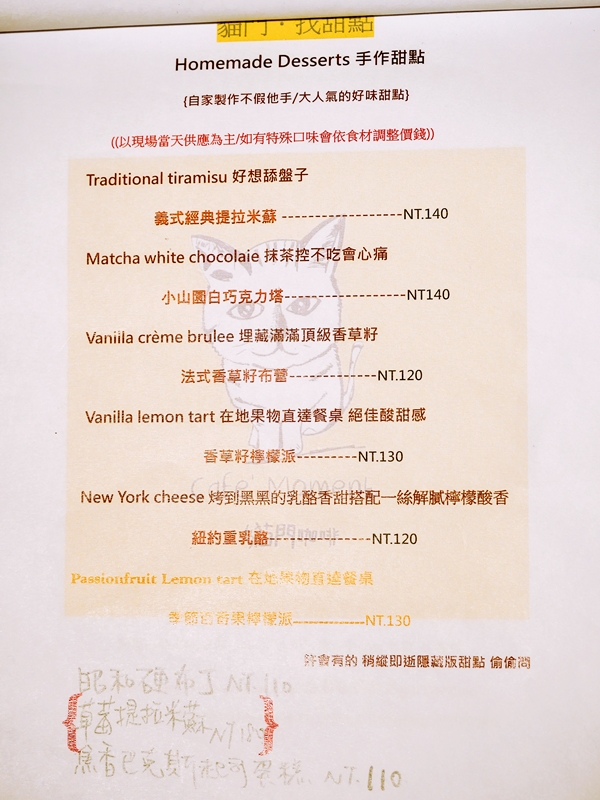 貓門·找甜點
Homemade Desserts 手作甜點
{自家製作不假他手/大人氣的好味甜點}
((以現場當天供應為主/如有特殊口味會依食材調整價錢))
Traditional tiramisu 好想舔盤子
義式經典提拉米蘇 ------------------NT.140
Matcha white chocolaie 抹茶控不吃會心痛
小山園白巧克力塔------------------NT140
Vaniila crème brulee 埋藏滿滿頂級香草籽
法式香草籽布蕾-------------NT.120
Vanilla lemon tart 在地果物直達餐桌 絕佳酸甜感
香草籽檸檬派---------NT.130
New York cheese 烤到黑黑的乳酪香甜搭配一絲解膩檸檬酸香
紐約重乳酪---------------NT.120
Cafe' Moment
貓門
Passionfruit Lemon tart 在地果物直達餐桌
季節百香果檸檬派---------------NT.130
許會有的 稍縱即逝隱藏版甜點 偷偷問
昭和硬布丁 NT.110
{草莓提拉米蘇 NT180}
焦香巴克斯起司蛋糕. NT.110